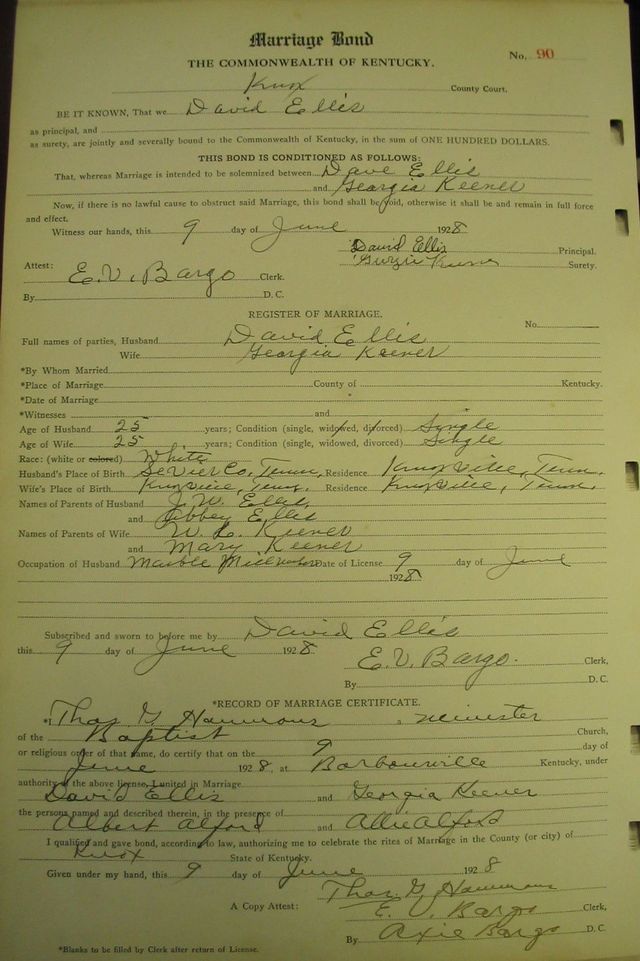 Marriage Bond
No. 90
THE COMMONWEALTH OF KENTUCKY.
Knox County Court.
BE IT KNOWN, That we David Ellis
as principal, and
as surety, are jointly and severally bound to the Commonwealth of Kentucky, in the sum of ONE HUNDRED DOLLARS.
THIS BOND IS CONDITIONED AS FOLLOWS:
That, whereas Marriage is intended to be solemnized between Dave Ellis
and Georgia Keener
Now, if there is no lawful cause to obstruct said Marriage, this bond shall be void, otherwise it shall be and remain in full force
and effect.
Witness our hands, this 9 day of June 1928
David Ellis Principal.
Surety.
Attest: E. V. Bargo Clerk.
By D. C.
REGISTER OF MARRIAGE.
No.
Full names of parties, Husband David Ellis
Wife Georgia Keener
*By Whom Married
*Place of Marriage County of Kentucky.
*Date of Marriage
*Witnesses and
Age of Husband 25 years; Condition (single, widowed, divorced) Single
Age of Wife 25 years; Condition (single, widowed, divorced) Single
Race: (white or colored) White
Husband's Place of Birth Sevier Co, Tenn, Residence Knoxville, Tenn.
Wife's Place of Birth Knoxville, Tenn. Residence Knoxville, Tenn.
Names of Parents of Husband J. W. Ellis,
and Abbey Ellis
Names of Parents of Wife W. L. Keener
and Mary Keener
Occupation of Husband Marble Mill Date of License 9 day of June
1928
Subscribed and sworn to before me by David Ellis
this 9 day of June 1928
E. V. Bargo. Clerk,
By D. C.
*RECORD OF MARRIAGE CERTIFICATE.
*I Thos. G. Hammons a minister
of the Baptist Church,
or religious order of that name, do certify that on the 9 day of
June 1928, at Barbourville Kentucky, under
authority of the above license, I united in Marriage
David Ellis and Georgia Keener
the persons named and described therein, in the presence of
Albert Alford and Allie Alford
I qualified and gave bond, according to law, authorizing me to celebrate the rites of Marriage in the County (or city) of
Knox State of Kentucky.
Given under my hand, this 9 day of June 1928
Thos. G. Hammons
A Copy Attest: E. V. Bargo Clerk,
By Axie Bargo D. C.
*Blanks to be filled by Clerk after return of License.